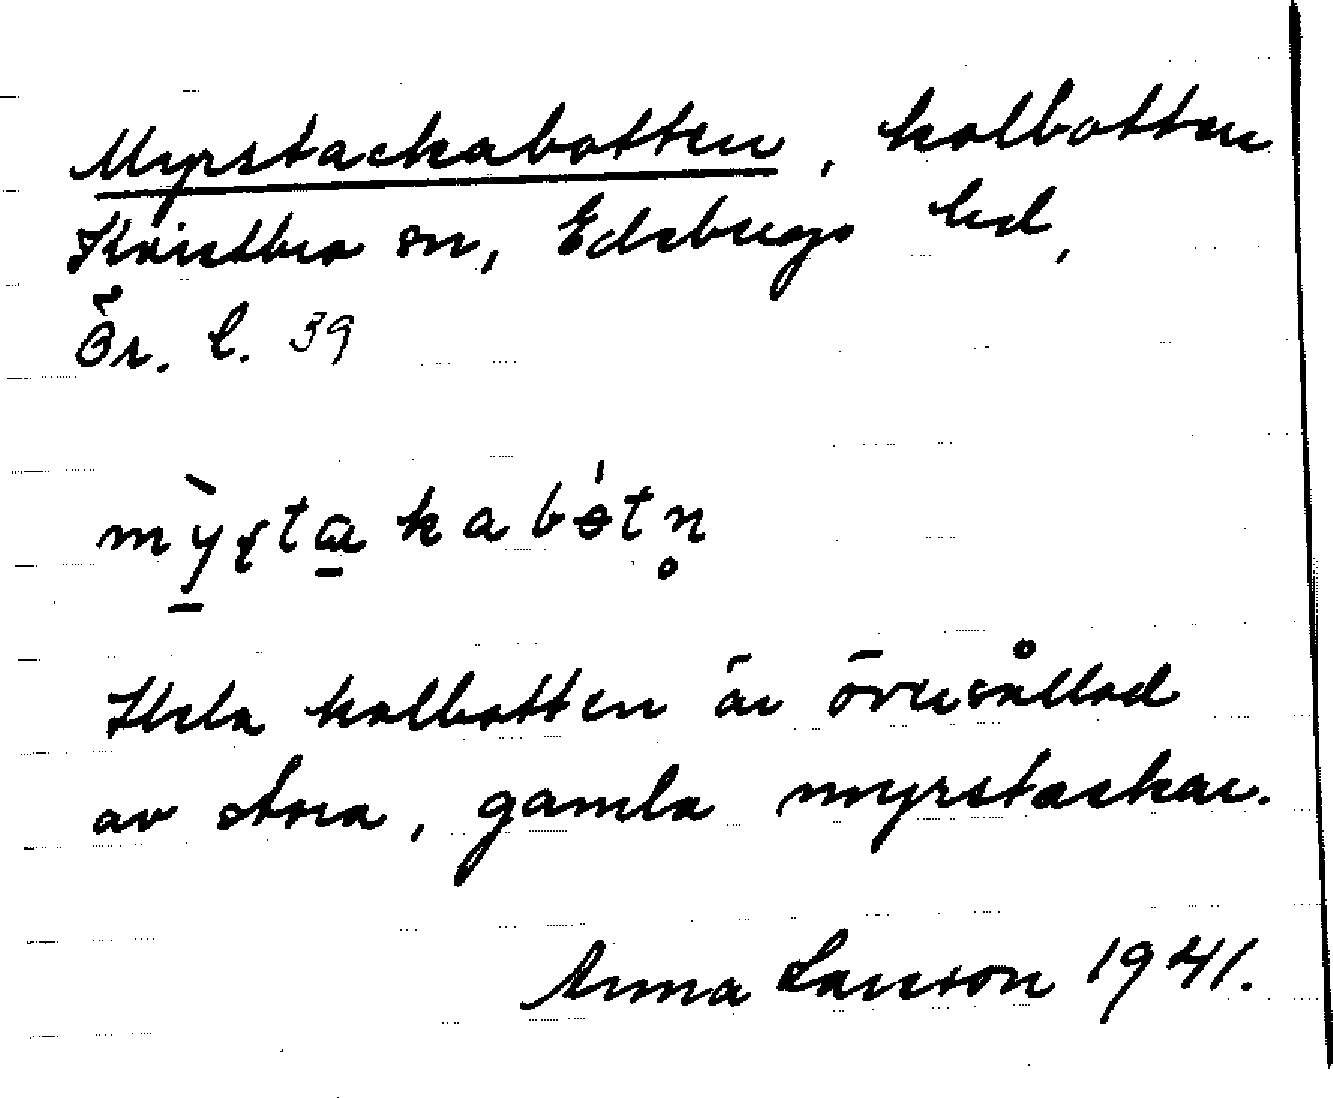 Myrstackabotten, kolbotten
Kvistbro sn, Edsbergs hd,
Ör. l. 39
mỳʂtakabótn̥
Hela kolbotten är översållad
av stora, gamla myrstackar.
Anna Larsson 1941.